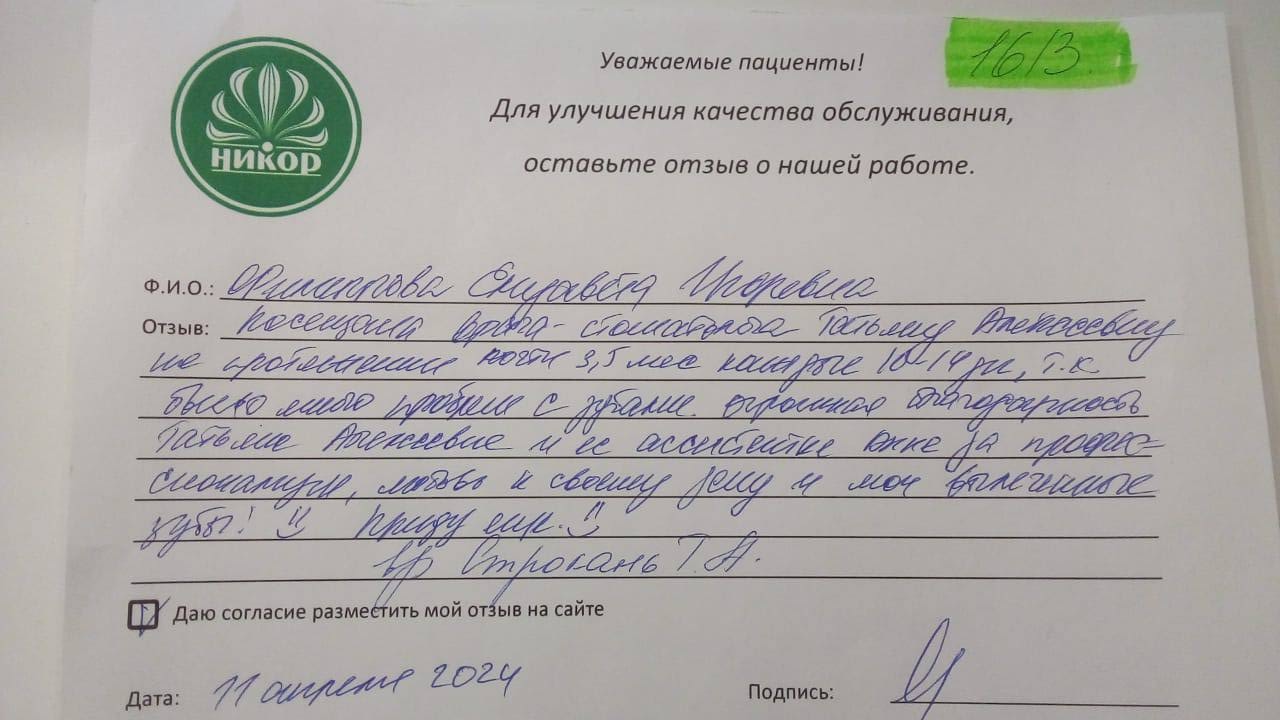 НИКОР
Уважаемые пациенты!
16/3
Для улучшения качества обслуживания,
оставьте отзыв о нашей работе.
Ф.И.О.: Филиппова Елизавета Игоревна
Отзыв: Посещала врача-стоматолога Татьяну Алексеевну
на протяжении почти 3,5 мес каждые 10-14 дн, т.к
было много проблем с зубами. огромная благодарность
Татьяне Алексеевне и ее ассистентке за профес-
сионализм, любовь к своему делу и мои вылеченные
зубы! Приду еще.
вр Строкань Т.А.
Даю согласие разместить мой отзыв на сайте
Дата: 11 апреля 2024
Подпись: